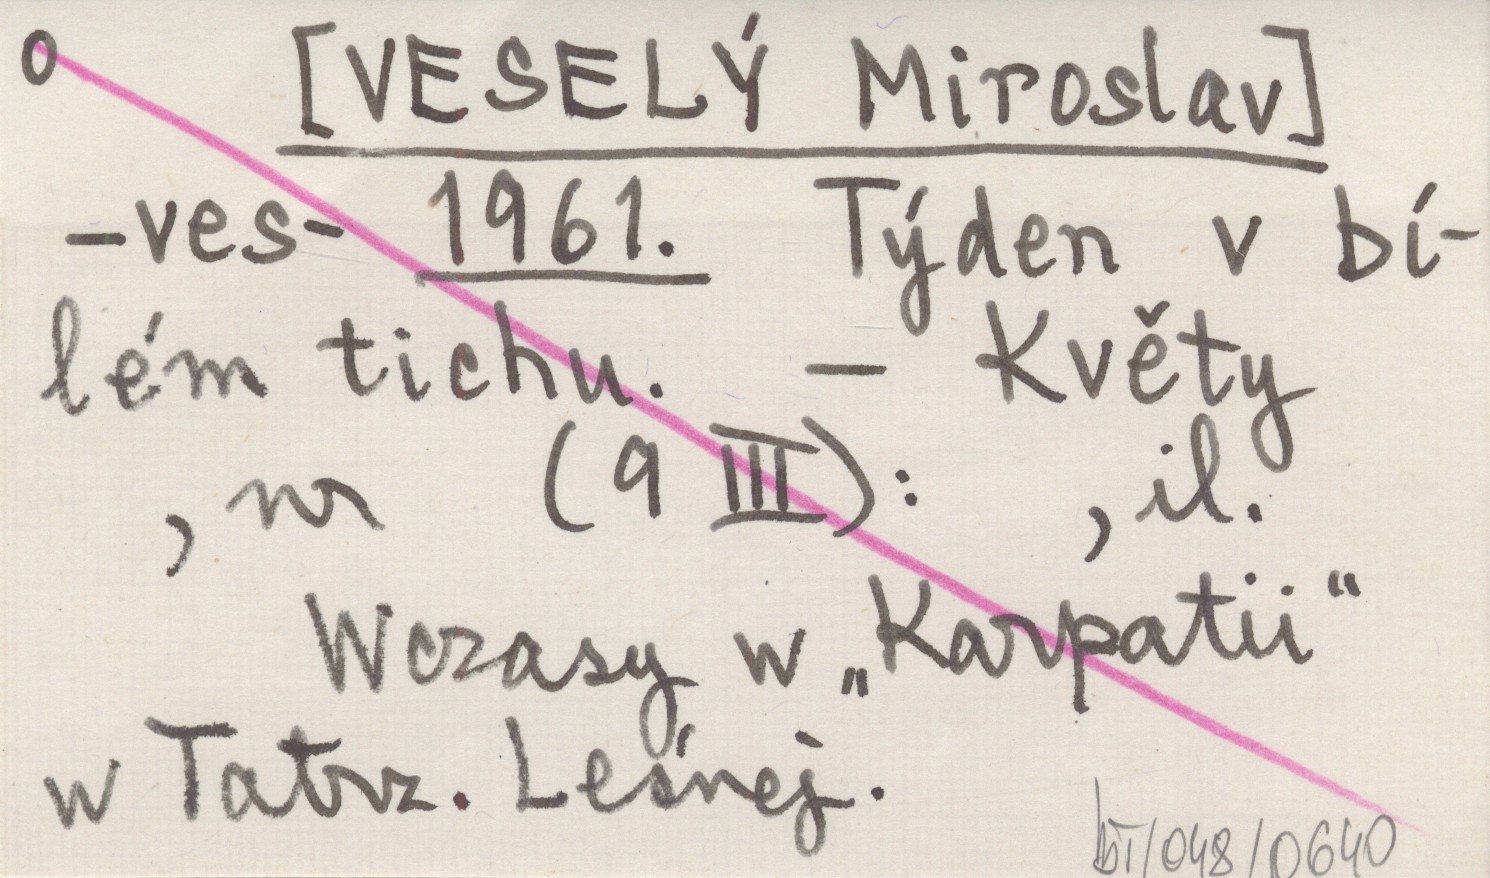 o [VESELÝ Miroslav]
-ves- 1961. Týden v bí-
lém tichu. - Květy
, nr (9 III): , il.
Wczasy w „Karpatii“
w Tatrz. Leśnej.
bT/048/0640